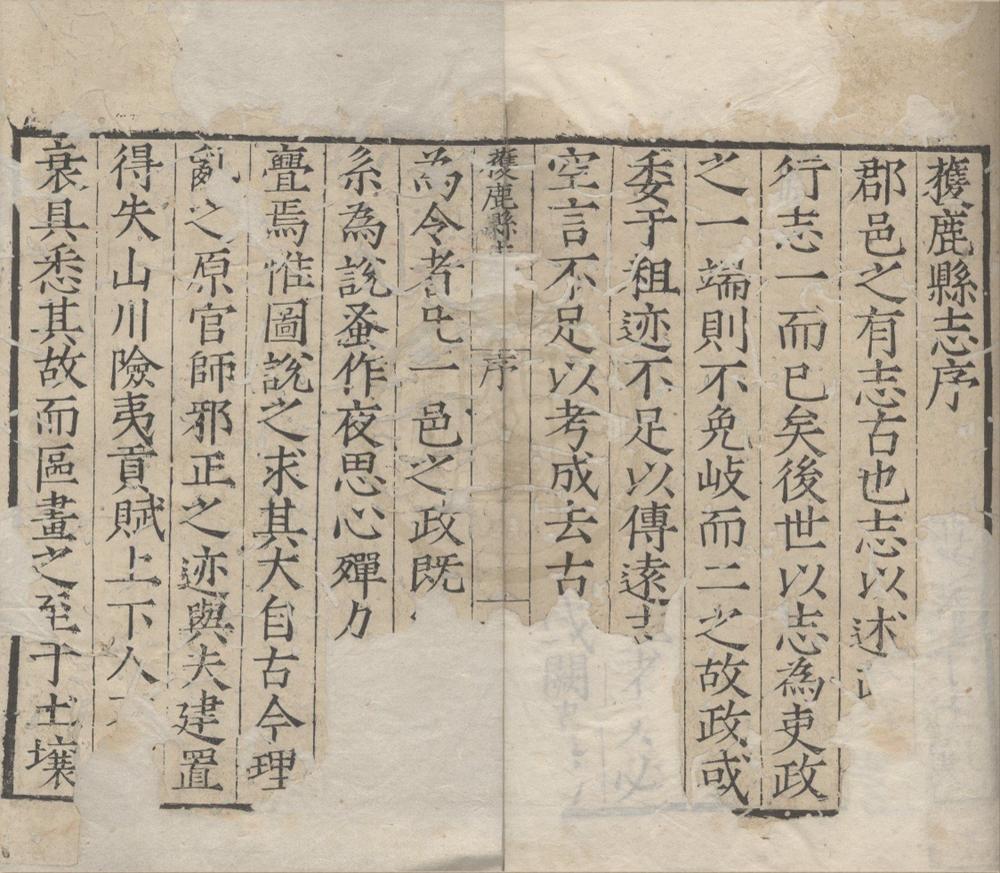 獲鹿縣志序
郡邑之有志古也志以述
行志一而已矣後世以志為吏政
之一端則不免岐而二之故政或
委于粗迹不足以傳遠志
空言不足以考成去古
獲鹿縣志 序 一
為令者也一邑之政既
系為說蚤作夜思心殫力
亹焉惟圖說之求其大自古今理
亂之原官師邪正之迹與夫建置
得失山川險夷貢賦上下人
衰具悉其故而區畫之至于土壤